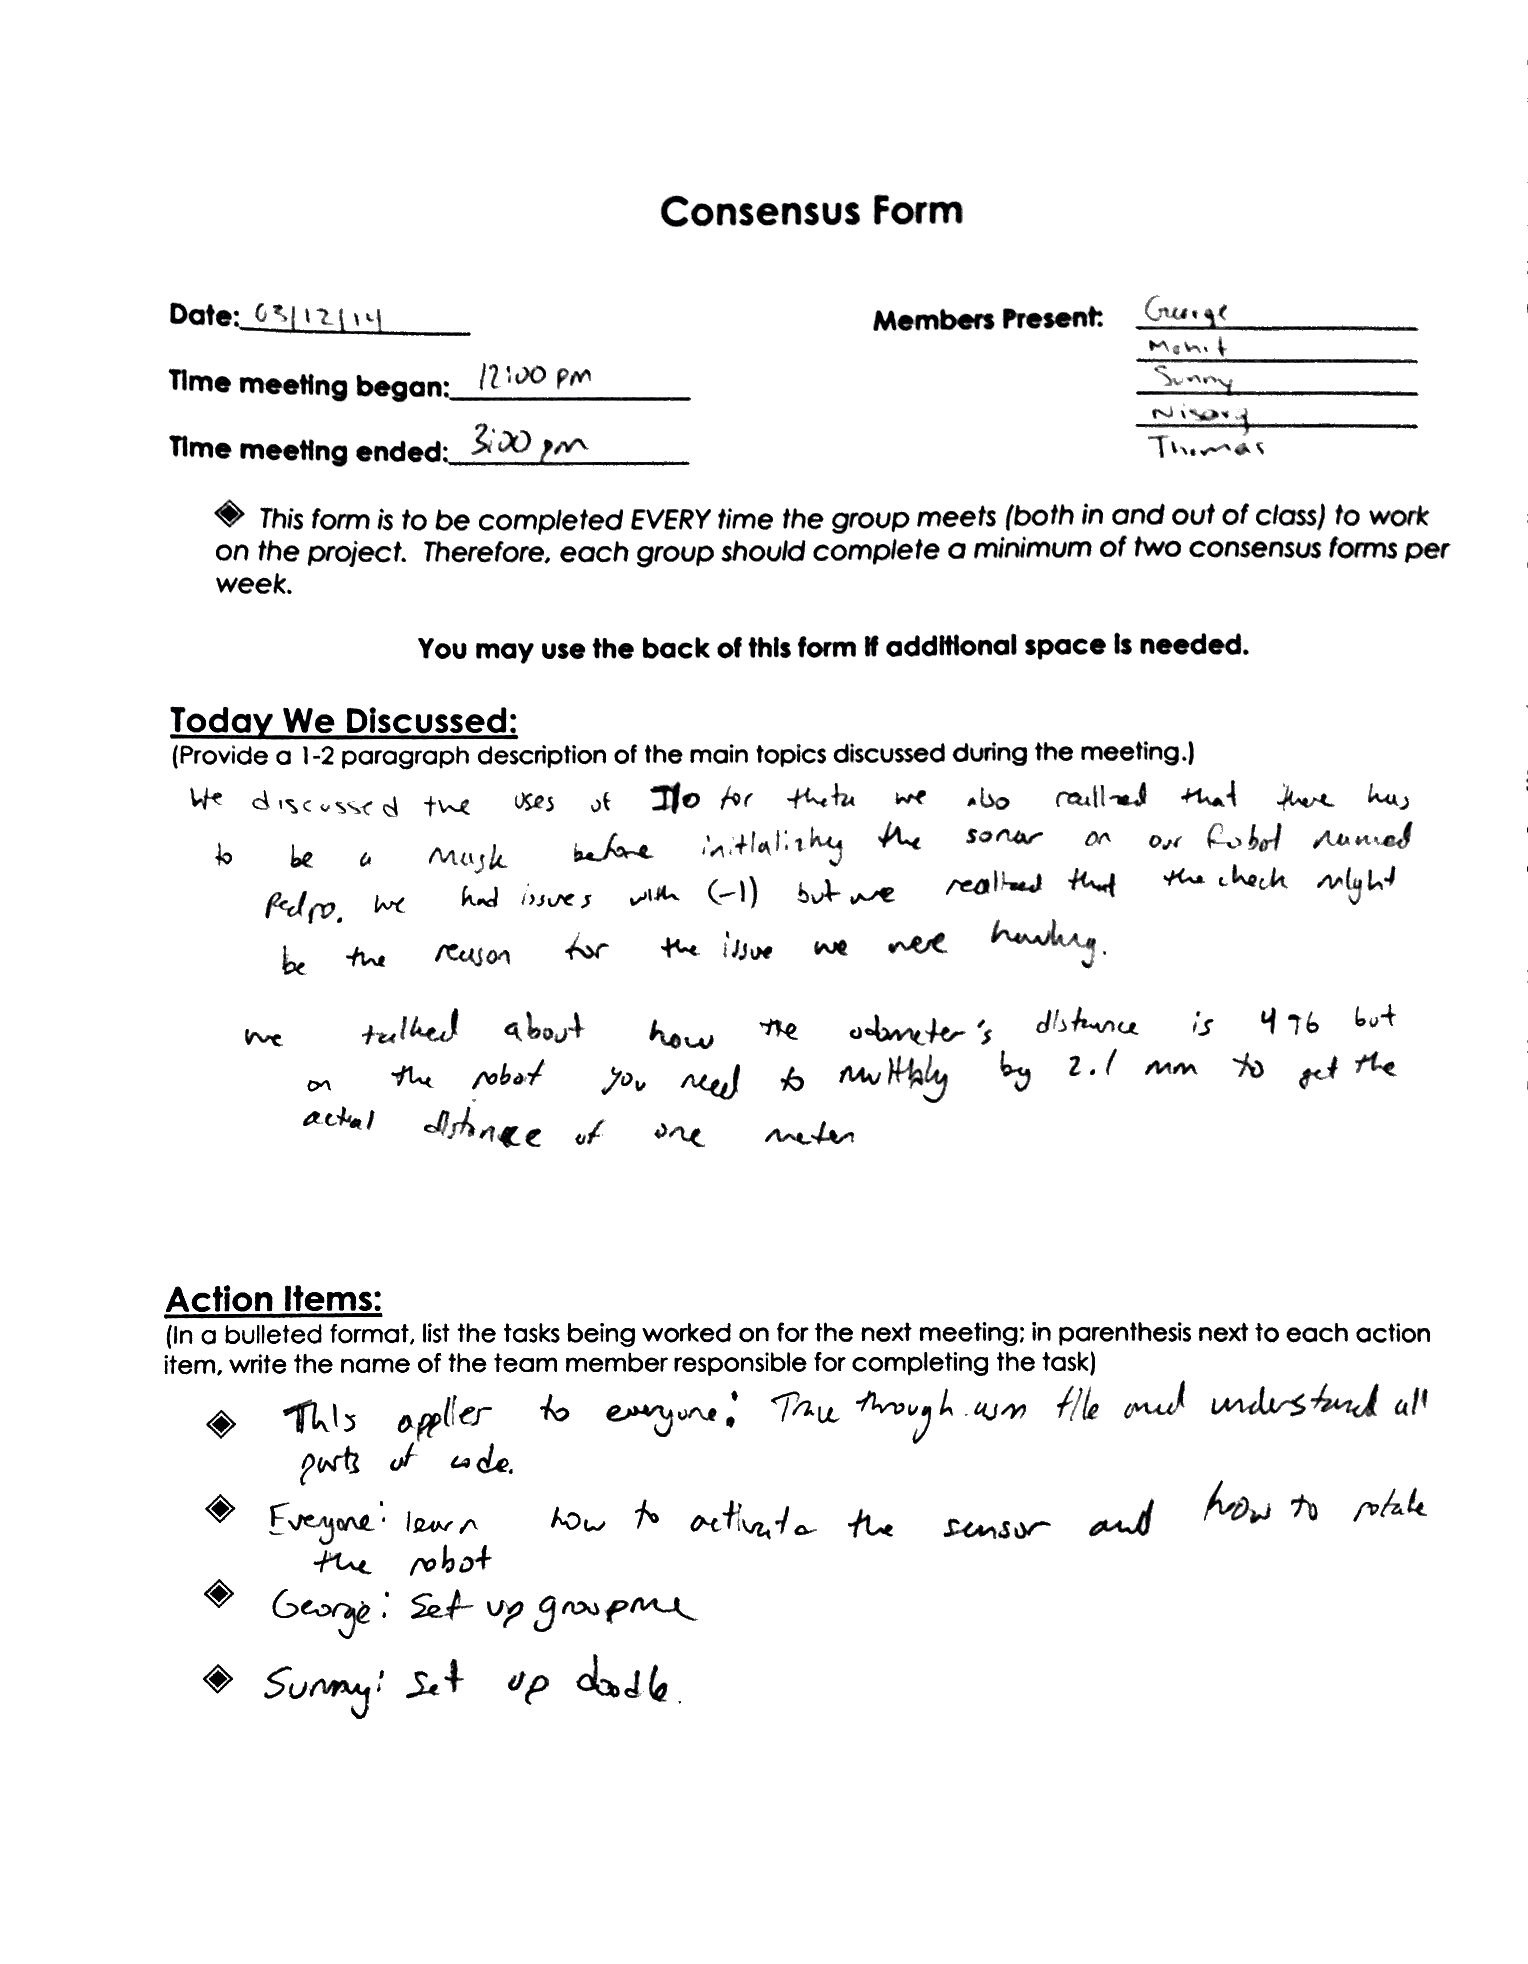 Consensus Form
Date: 03/12/14
Members Present: George
Mohit
Time meeting began: 12:00 pm
Sunny
Nisarg
Time meeting ended: 3:00 pm
Thomas
◈ This form is to be completed EVERY time the group meets (both in and out of class) to work
on the project. Therefore, each group should complete a minimum of two consensus forms per
week.
You may use the back of this form if additional space is needed.
Today We Discussed:
(Provide a 1-2 paragraph description of the main topics discussed during the meeting.)
We discussed the uses of I/O for theta we also realized that there has
to be a mask before initializing the sonar on our Robot named
Pedro. We had issues with (-1) but we realized that the check might
be the reason for the issue we were having.
we talked about how the odometer's distance is 476 but
on the robot you need to multiply by 2.1 mm to get the
actual distance of one meter
Action Items:
(In a bulleted format, list the tasks being worked on for the next meeting; in parenthesis next to each action
item, write the name of the team member responsible for completing the task)
◈ This applies to everyone: through asm file and understand all
parts of code.
◈ Everyone: learn how to activate the sensor and how to rotate
the robot
◈ George: Set up groupme
◈ Sunny: Set up doodle.